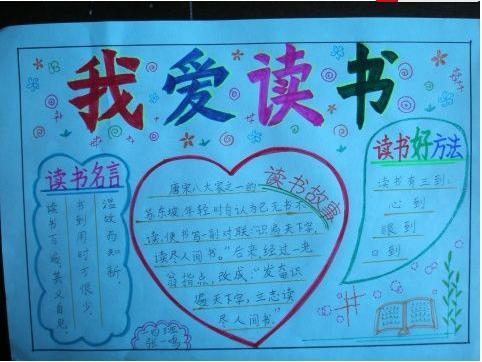 我爱读书
读书名言
温故而知新,
书到用时方恨少,
读书百遍,其义自见。
读书故事
唐宋八大家之一的
苏东坡,年轻时自认为已无书不
读,便书写一副对联:"识遍天下字,
读尽人间书。"后来,经过一老
翁指点,改成,"发奋识
遍天下字,立志读
尽人间书。"
读书好方法
读书有三到:
心到
眼到
口到
张一鸣